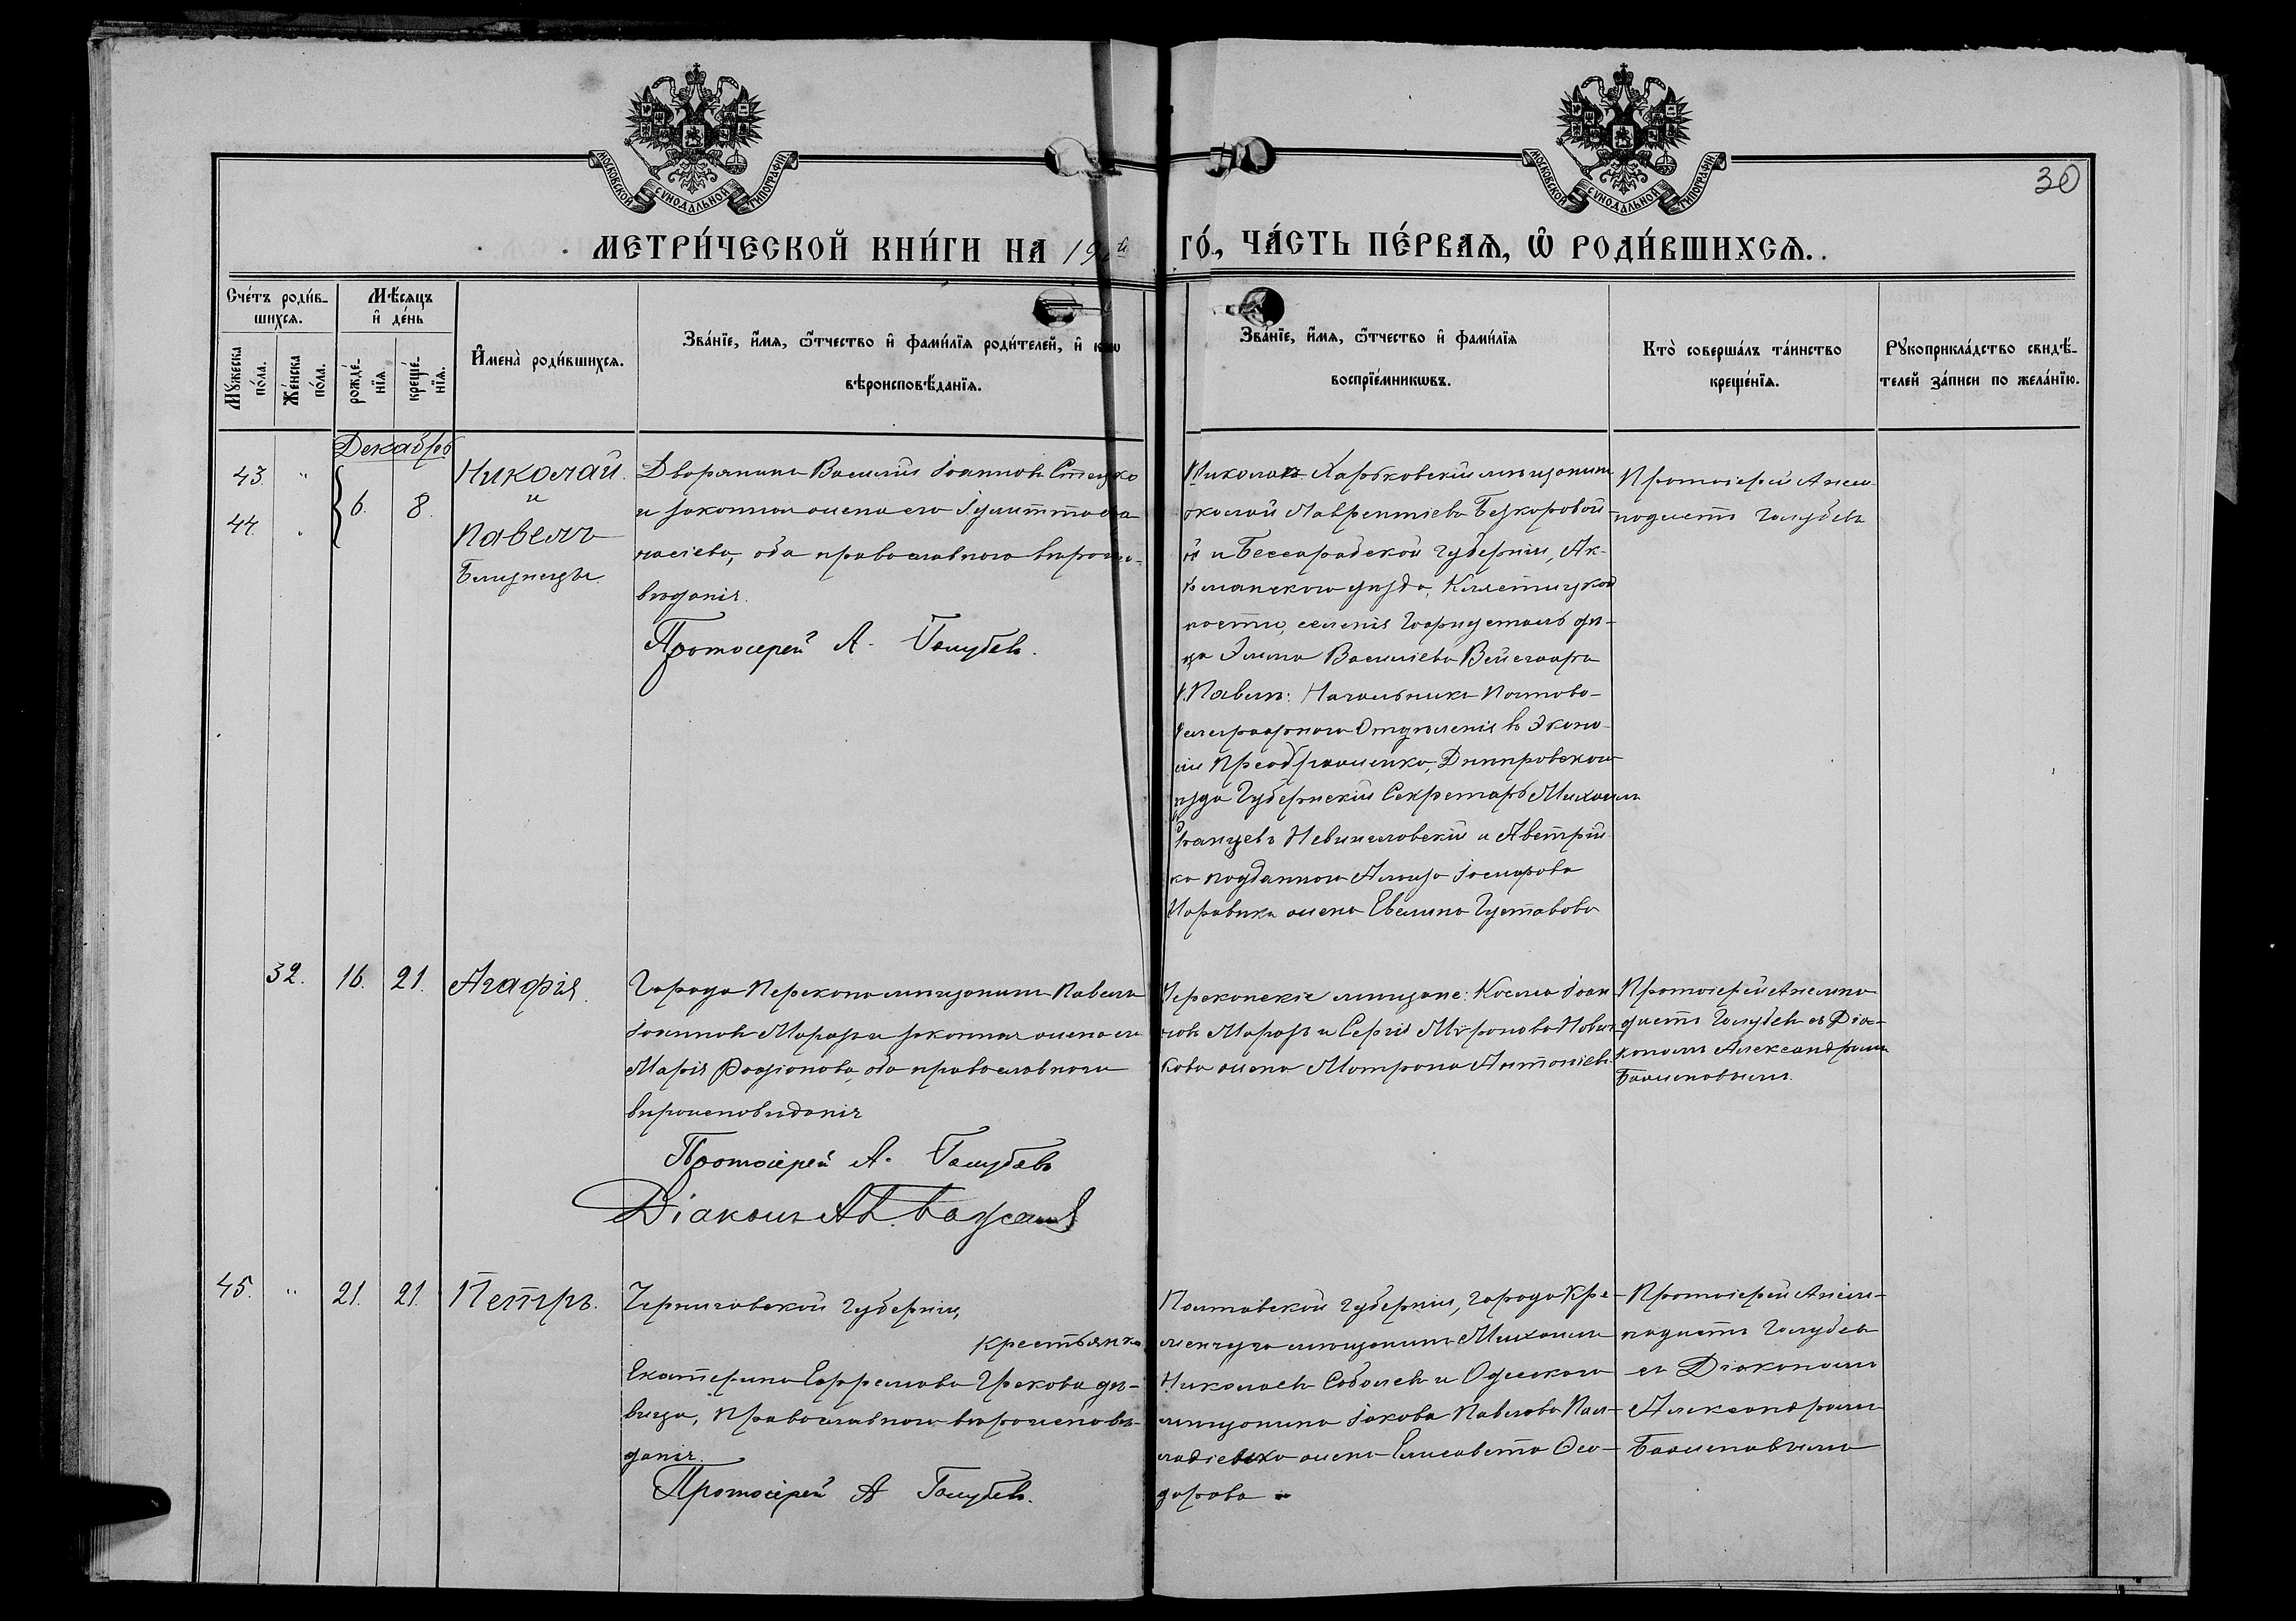 МОСКОВСКОЙ СѴНОДАЛЬНОЙ ТИПОГРАФІИ
МОСКОВСКОЙ СѴНОДАЛЬНОЙ ТИПОГРАФІИ
30
МЕТРИ́ЧЕСКОЙ КНИ́ГИ НА 190 ГО́, ЧА́СТЬ ПЕ́РВАѦ, Ѡ҆ РОДИ́ВШИХСѦ.
Сче́тъ роди́в-
шихсѧ.
Мѣ́сѧцъ
и҆ де́нь
Мꙋ́жеска
по́ла.
Же́нска
по́ла.
рожде́-
нїѧ.
креще́-
нїѧ.
И҆мена̀ роди́вшихсѧ.
Зва́нїе, и҆́мѧ, ѻ҆́тчество и҆ фами́лїѧ роди́телей, и҆
вѣроисповѣ́данїѧ.
Зва́нїе, и҆́мѧ, ѻ҆́тчество и҆ фами́лїѧ
воспрїе́мникѡвъ.
Кто̀ соверша́лъ та́инство
креще́нїѧ.
Рꙋкоприкла́дство свидѣ́-
телей за́писи по жела́нїю.
Декабрь
43. "
44. "
6. 8.
Николай
и
Павелъ
близнецы.
Дворянинъ Василій Іоанновъ Стецко
и законная жена его Іулитта
насіева, оба православнаго вѣроиспо-
вѣданія.
Протоіерей А. Голубевъ.
Николая Харьковскій мѣщанинъ
колай Лаврентіевъ Безкоровай-
й и Бессарабской губерніи, Ак-
керманскаго уѣзда, Клястицкой
волости, селенія дѣ-
ца Эмма Васильева
Павла: Начальникъ Почтово-
телеграфнаго Отдѣленія въ Эконо-
міи Преображенка, Днѣпровскаго
уѣзда Губернскій Секретарь Михаилъ
Невингловскій и Австрій
ко подданнаго Алоиза
жена Евелина Густавова
Протоіерей Анем-
подистъ Голубевъ
32. 16. 21. Агафія.
Города Перекопа мѣщанинъ Павелъ
Іоанновъ Мараръ и законная жена его
Марія Родіонова, оба православнаго
вѣроисповѣданія
Протоіерей А. Голубевъ
Діаконъ Ал. Баженовъ
Перекопскіе мѣщане: Косма Іоан
новъ Мараръ и Сергія Мѵронова Нови
кова жена Матрона Антоніева
Протоіерей Анемпо
дистъ Голубевъ съ Діа-
кономъ Александромъ
Баженовымъ.
45. " 21. 21. Петръ.
Черниговской губерніи,
крестьянка
Екатерина Ефремова Грекова дѣ-
вица, православнаго вѣроисповѣ-
данія.
Протоіерей А Голубевъ.
Полтавской губерніи, города Кре-
менчуга мѣщанинъ Михаилъ
Николаевъ Соболевъ и Одесскаго
мѣщанина Іакова Павлова Пал-
ладіевка жена Елисавета Ѳео-
дорова
Протоіерей Анем-
подистъ Голубевъ
съ Діакономъ
Александромъ
Баженовымъ